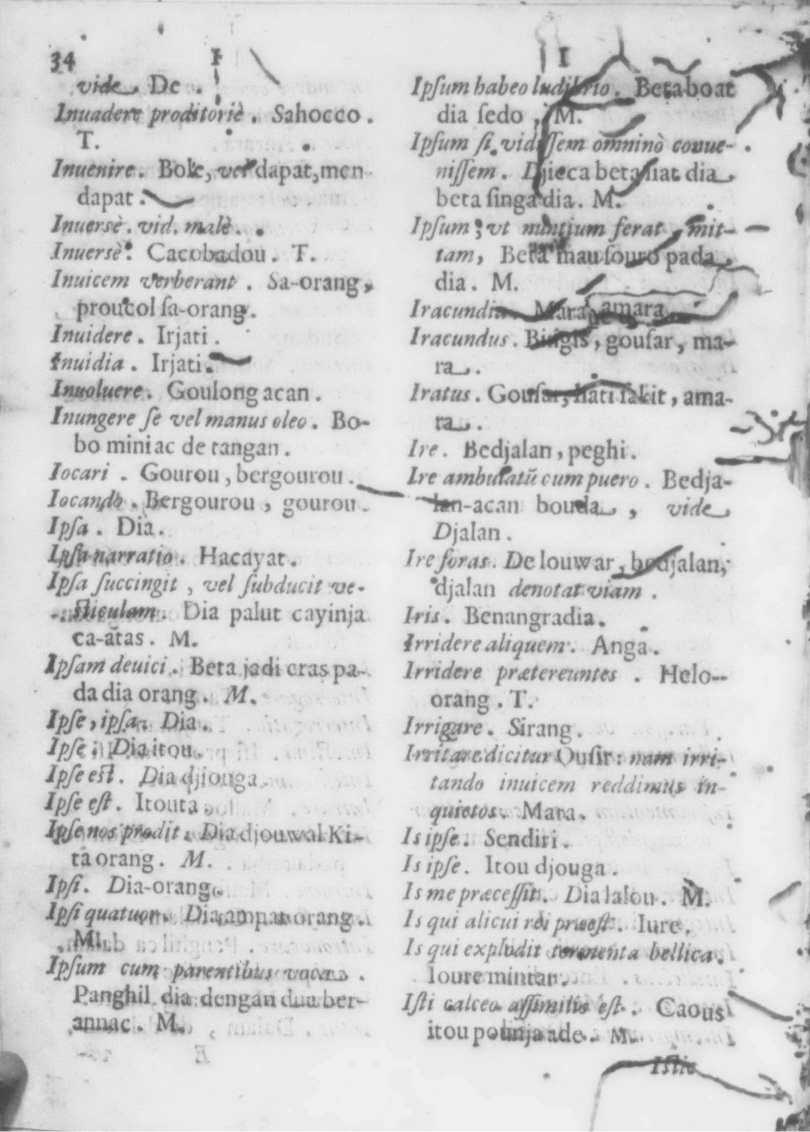 34 I
vide. De.
Inuadere proditoriè. Sahocco.
T.
Inuenire. Bole, vel dapat, men
dapat.
Inuersè. vid. malè.
Inuersè. Cacobadou. T.
Inuicem verberant. Sa-orang,
proucol sa-orang.
Inuidere. Irjati.
Inuidia. Irjati.
Inuoluere. Goulong acan.
Inungere se vel manus oleo. Bo-
bo miniac de tangan.
Iocari. Gourou, bergourou.
Iocando. Bergourou, gourou.
Ipsa. Dia.
Ipsa narratio. Hacayat.
Ipsa succingit, vel subducit ve-
sticulam. Dia palut cayinja
ca-atas. M.
Ipsam deuici. Beta jadi cras pa-
da dia orang. M.
Ipse, ipsa. Dia.
Ipse. Dia itou.
Ipse est. Dia djouga.
Ipse est. Itouta.
Ipse nos prodit. Dia djouwal Ki-
ta orang. M.
Ipsi. Dia-orang.
Ipsi quatuor. Dia ampat orang.
M.
Ipsum cum parentibus voca.
Panghil dia dengan dua ber-
annac. M.
I
Ipsum habeo ludibrio. Beta boat
dia sedo, M.
Ipsum si vidissem omninò conue-
nissem. Djieca beta liat dia
beta singa dia. M.
Ipsum, vt nuntium ferat, mit-
tam, Beta mau souro pada
dia. M.
Iracundia. Mara, amara.
Iracundus. Bingis, gousar, ma-
ra.
Iratus. Gousar, hati sakit, ama-
ra.
Ire. Bedjalan, peghi.
Ire ambulatū cum puero. Bedja-
lan-acan bouda, vide
Djalan.
Ire foras. De louwar, bedjalan,
djalan denotat viam.
Iris. Benangradia.
Irridere aliquem. Anga.
Irridere prætereuntes. Helo-
orang. T.
Irrigare. Sirang.
Irritare dicitur Ousir: nam irri-
tando inuicem reddimus in-
quietos. Mara.
Is ipse. Sendiri.
Is ipse. Itou djouga.
Is me præcessit. Dia lalou. M.
Is qui alicui rei præest. Iure.
Is qui explodit tormenta bellica.
Ioure mintan.
Isti calceo assimilis est. Caous
itou polinja ade. M.
Istic